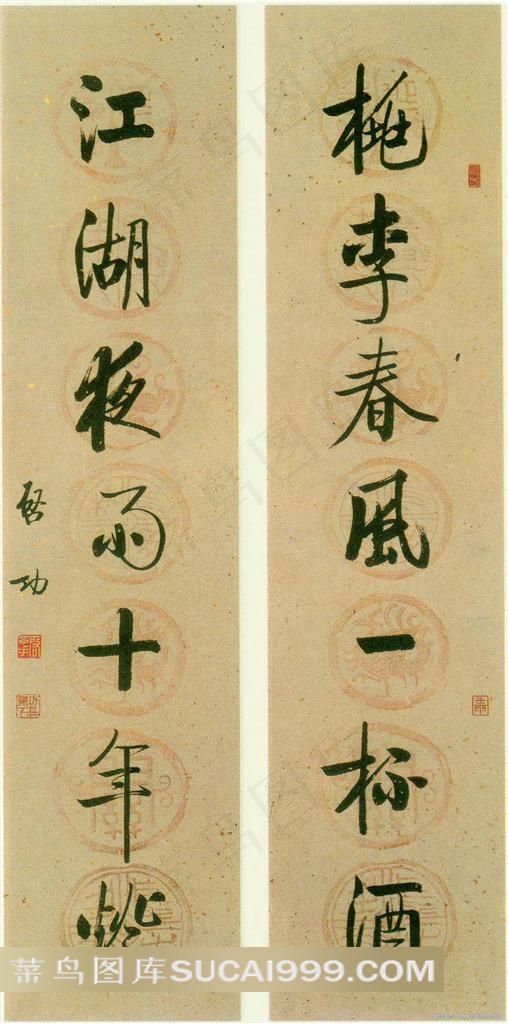 桃李春风一杯酒
江湖夜雨十年灯
启功
菜鸟图库SUCAI999.COM